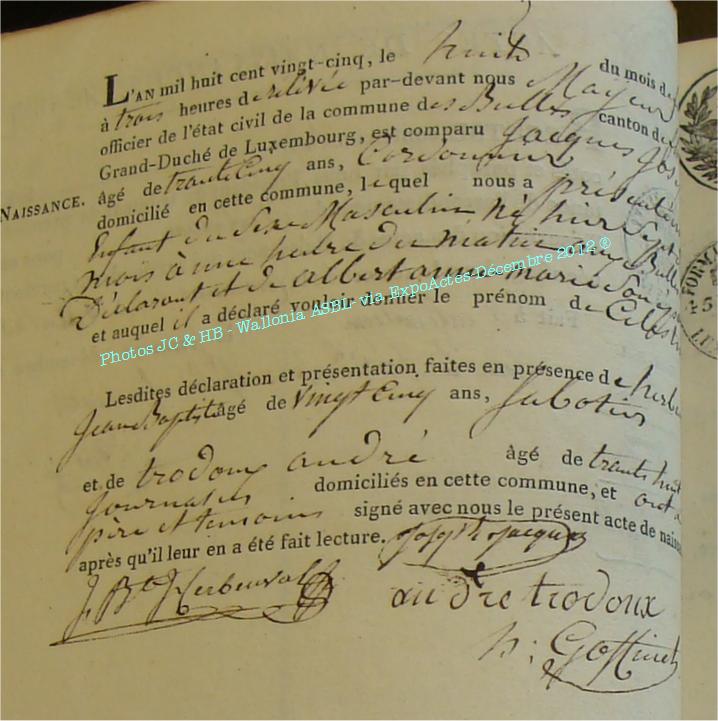 L'AN mil huit cent vingt-cinq, le huit du mois d
à trois heures de relivée par-devant nous Mayeur
officier de l'état civil de la commune des Bulles canton de
Grand-Duché de Luxembourg, est comparu Jacques Jos
NAISSANCE. âgé de trante Cinq ans, Cordonnier
domicilié en cette commune, lequel nous a présenté un
Enfant du Sexe Masculin né hier Sept
mois à une heure du matin aux Bull
Déclarant et de albert anne marie Son
et auquel il a déclaré vouloir donner le prénom de Celest
Photos JC & HB - Wallonia ASBL via ExpoActes Décembre 2012 ®
Lesdites déclaration et présentation faites en présence de herb
Jean Baptist âgé de vingt Cinq ans, Sabotier
et de trodoux andré âgé de trante huit
Journalier domiciliés en cette commune, et ont
père et temoins signé avec nous le présent acte de nais
après qu'il leur en a été fait lecture. Joseph Jacques
J. Bte Herbeuval
andre trodoux
h: Goffinet
FORM
5